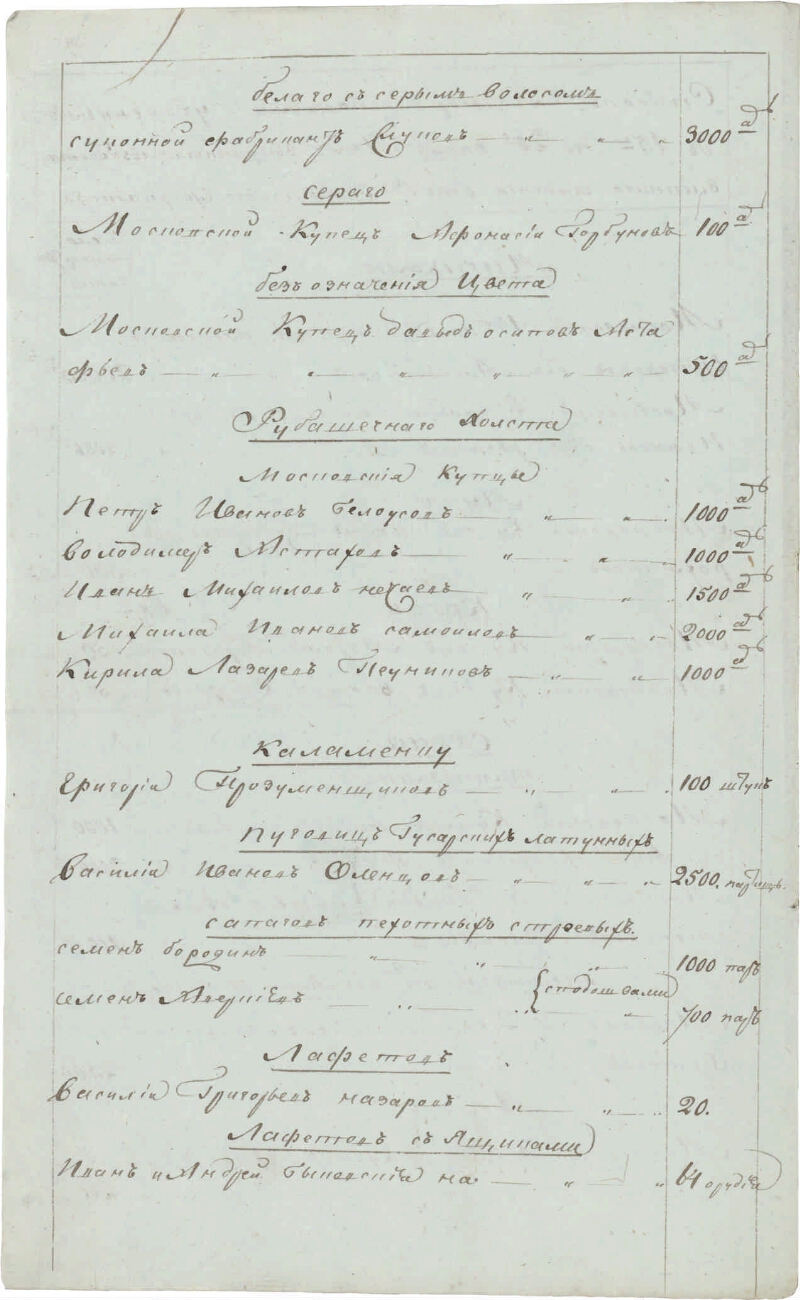 белаго съ серымъ волосомъ
суконной фабрикантъ 3000 ар
сераго
Московской Купецъ Афонасіи Горбуновъ 100 ар
безъ означенія Цвета
Московской Купецъ давыдъ осиповъ Аста
фьевъ 500 ар
Рубашечнаго Холста
Московскія Купцы
Петръ Ивановъ Белоусовъ 1000 ар
володимеръ Астаховъ 1000 ар
Иванъ Михаиловъ нечаевъ 1500 ар
Михаила Ивановъ самоиловъ 2000 ар
Кирила Лазаревъ 1000 ар
Каламенку
Григоріи Прозуменщиковъ 100 штукъ
Пуговицъ Гусарскихъ латунныхъ
Василіи Ивановъ Оленцовъ 2500.
сапаговъ пехотныхъ строевыхъ.
семенъ бородинъ 1000 паръ
семенъ Аверкіевъ {сподошвами 700 паръ
Лафетовъ
Василіи Григорьевъ назаровъ 20.
Лафетовъ съ Ящиками
Иванъ и Андрей Быковскія на 64 орудія